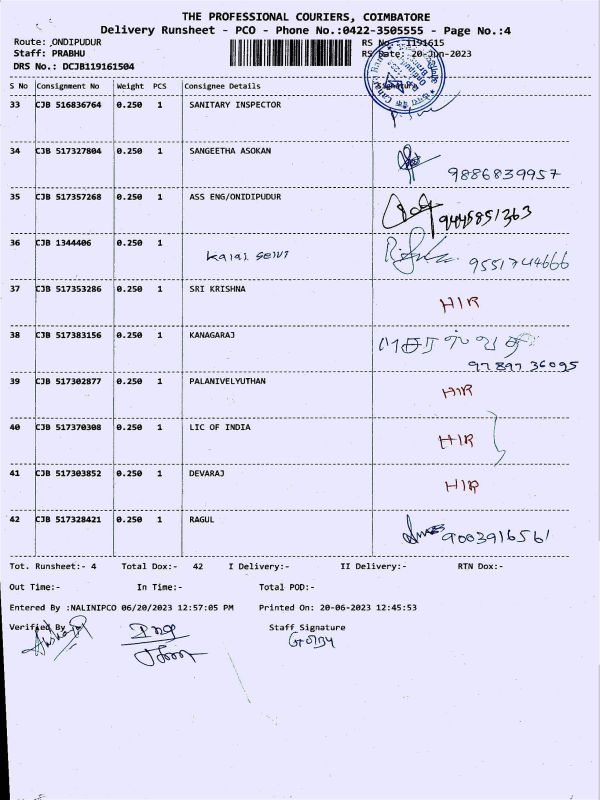 THE PROFESSIONAL COURIERS, COIMBATORE
Delivery Runsheet - PCO - Phone No.:0422-3505555 - Page No.:4
Route: ,ONDIPUDUR RS No.: 1191615
Staff: PRABHU RS Date: 20-Jun-2023
DRS No.: DCJB119161504
S No Consignment No Weight PCS Consignee Details Signature
33 CJB 516836764 0.250 1 SANITARY INSPECTOR
34 CJB 517327804 0.250 1 SANGEETHA ASOKAN
9886839957
35 CJB 517357268 0.250 1 ASS ENG/ONIDIPUDUR
9445851363
36 CJB 1344406 0.250 1
Kalai Selvi 9551744666
37 CJB 517353286 0.250 1 SRI KRISHNA
HIR
38 CJB 517383156 0.250 1 KANAGARAJ
9789736095
39 CJB 517302877 0.250 1 PALANIVELYUTHAN
HIR
40 CJB 517370308 0.250 1 LIC OF INDIA
HIR
41 CJB 517303852 0.250 1 DEVARAJ
HIR
42 CJB 517328421 0.250 1 RAGUL
9003916561
Tot. Runsheet:- 4 Total Dox:- 42 I Delivery:- II Delivery:- RTN Dox:-
Out Time:- In Time:- Total POD:-
Entered By :NALINIPCO 06/20/2023 12:57:05 PM Printed On: 20-06-2023 12:45:53
Verified By Staff Signature